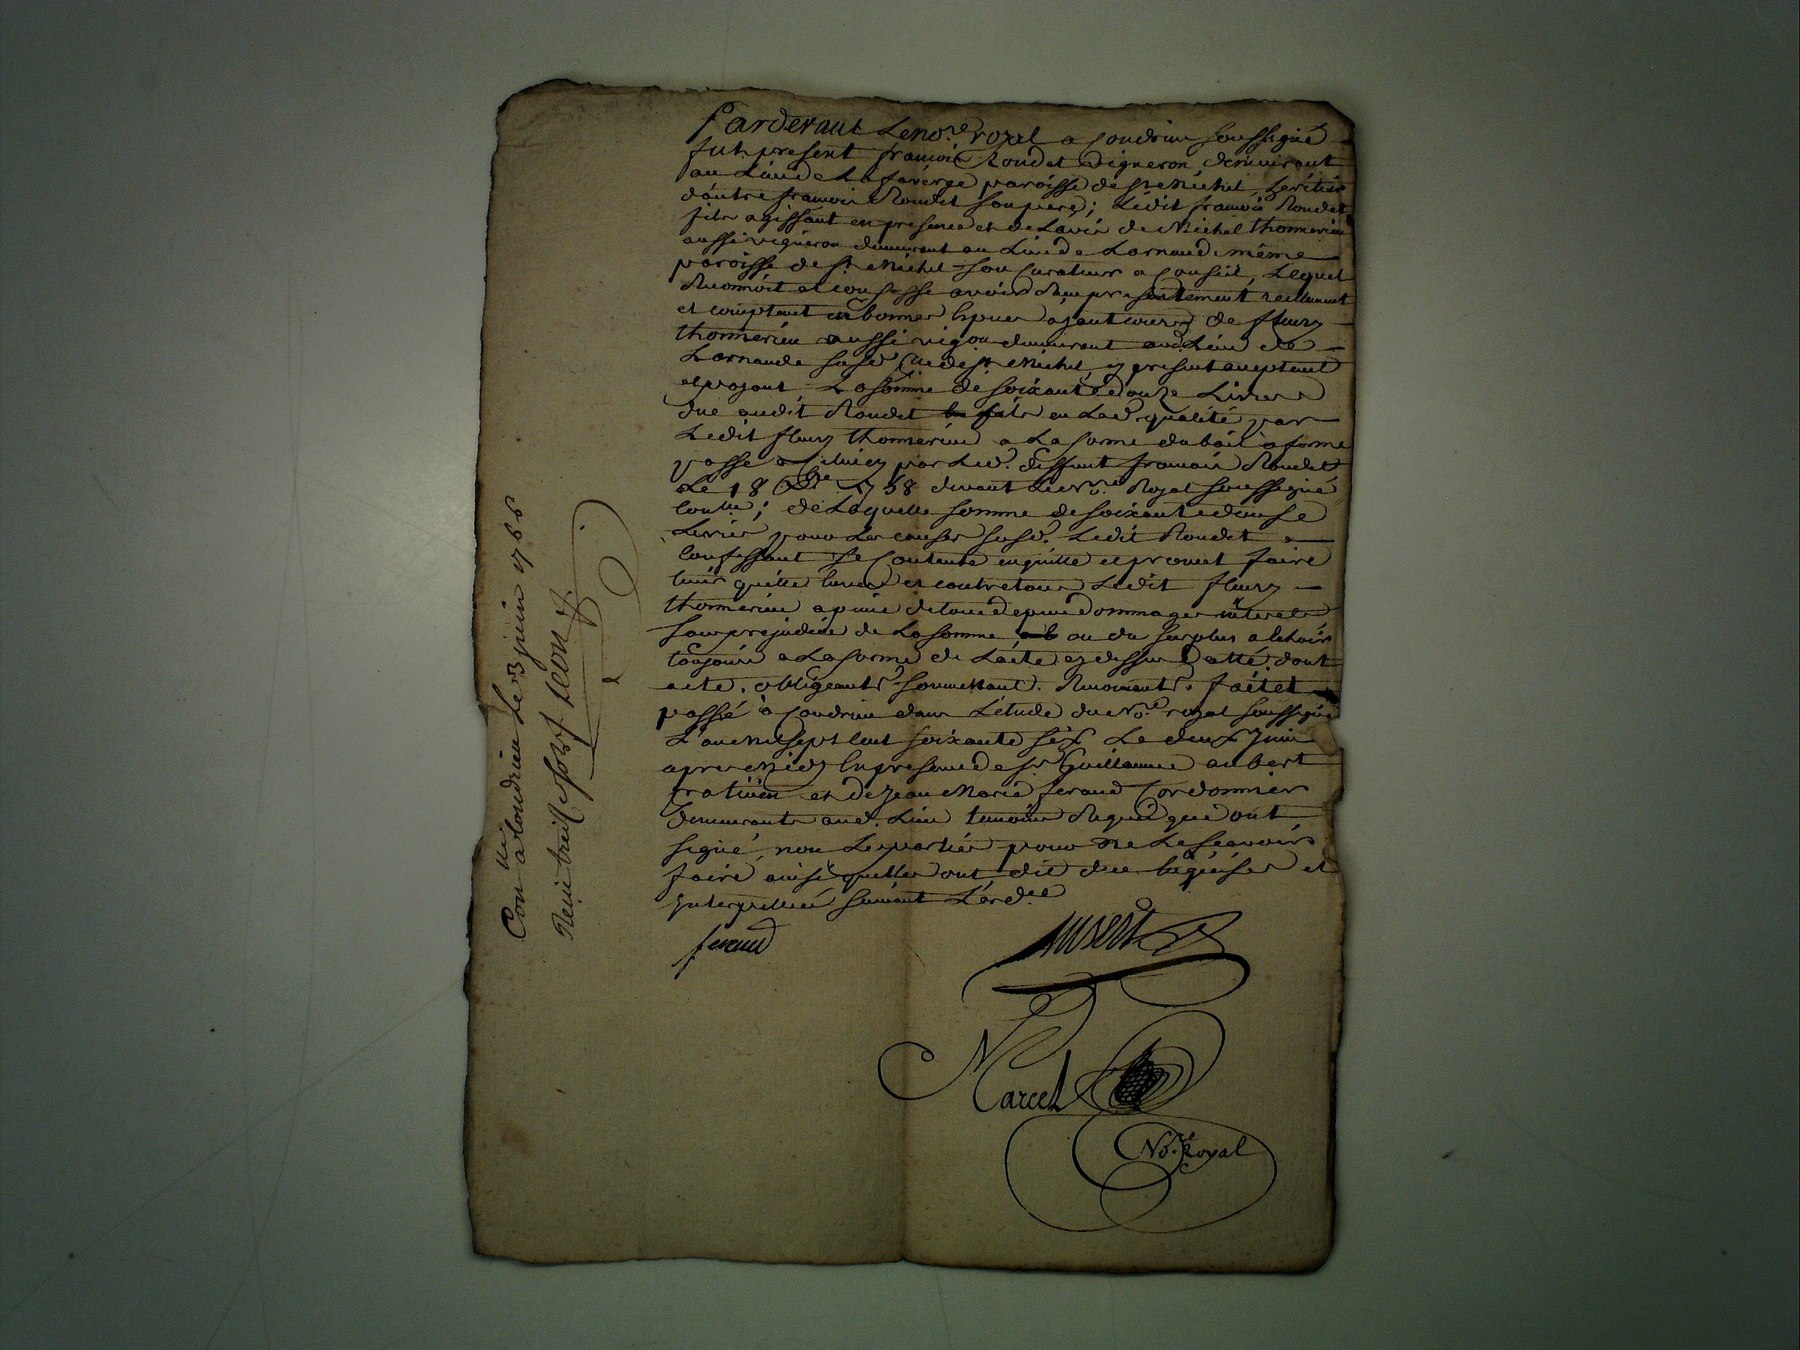 Pardevant Le no.re royal a Condrieu soussigné
fut present francois Roudet vigneron demeurant
au Lieu de Lafaverge paroisse de st Michel heritier
d'autre francois Roudet son pere; Ledit francois Roudet
fils agissant en presence et de Lavis de Michel thomerieu
aussi vigneron demeurant au Lieu de Larnaude même
paroisse de st Michel son Curateur a Conseil, Lequel
Reconnoit et confesse avoir Receu presentement reellement
et comptant en bonnes especes ayant cours de fleury
thomerieu aussi vig.on demeurant aud. Lieu de
Larnaude susd. de st Michel, cy present acceptant
et payant, La somme de soixante douze Livres
due audit Roudet fils en Lad. qualité par
Ledit fleury thomerieu a La forme du bail a ferme
passé a par Led. deffunt francois Roudet
Le 18 1758 devant Le No.re Royal soussigné
; de Laquelle somme de soixante douse
Livres pour Les causes susd. Ledit Roudet
confessant se Contente en quitte et promet faire
tenir quitte envers et contre tous Ledit fleury
thomerieu a peine de tous depens dommages interets
sans prejudice de La somme ou du surplus a echoir
toujours a La forme de Lacte cy dessus datté. dont
acte. obligeants. soumettant. Renonceants. fait et
passé à Condrieu dans L'étude du No.re royal soussigné
L'an mil sept cent soixante six Le deux Juin
apres midy En presence de sr. Guillaume aubert
praticien et de Jean Marie feraud Cordonnier
demeurants aud. Lieu temoins Requis qui ont
signé, non Les parties pour ne Le sçavoirs
faire ainsi quelles ont dit de ce enquises et
interpellées suivant L'ord.ce
feraud
Aubert
Marcel
No.re Royal
Con.lé a Condrieu Le 3 juin 1766
Reçu treize sols